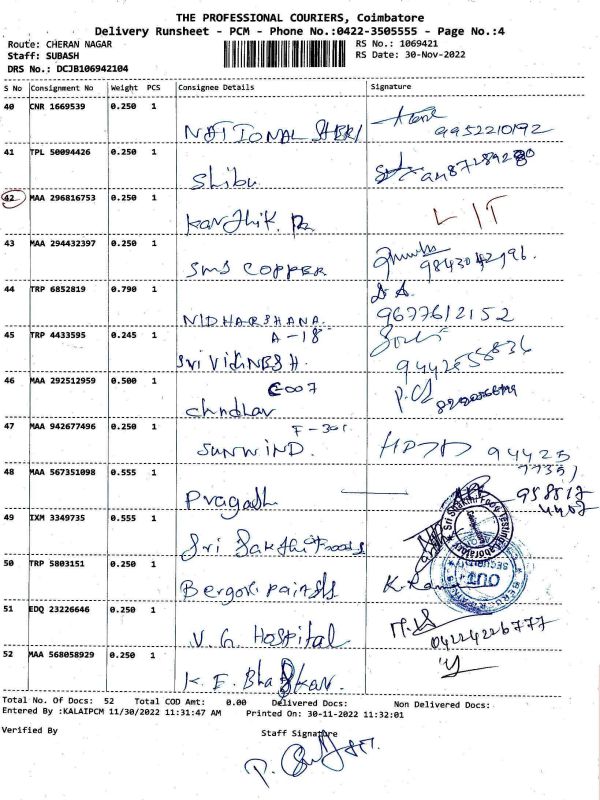 THE PROFESSIONAL COURIERS, Coimbatore
Delivery Runsheet - PCM - Phone No.:0422-3505555 - Page No.:4
Route: CHERAN NAGAR
RS No.: 1069421
Staff: SUBASH
RS Date: 30-Nov-2022
DRS No.: DCJB106942104
S No Consignment No Weight PCS Consignee Details Signature
40 CNR 1669539 0.250 1
NATIONAL
9952210192
41 TPL 50094426 0.250 1
Shibu
42 MAA 296816753 0.250 1
Karthik.
43 MAA 294432397 0.250 1
SMS COPPER
44 TRP 6852819 0.790 1
NIDHARSHANA.
9677612152
45 TRP 4433595 0.245 1
A-18
Sri VIGNESH.
46 MAA 292512959 0.500 1
C-007
47 MAA 942677496 0.250 1
F-301
SUNWIND.
94425
77351
48 MAA 567351098 0.555 1
Pragash
49 IXM 3349735 0.555 1
Sri Sakthi Foods
Sri Shakthi Food Testing Laboratory
50 TRP 5803151 0.250 1
Berger paints
OUT
SECURITY
51 EDQ 23226646 0.250 1
V. G. Hospital
04224226777
52 MAA 568058929 0.250 1
K. E. Bhaskar.
Total No. Of Docs: 52 Total COD Amt: 0.00 Delivered Docs: Non Delivered Docs:
Entered By :KALAIPCM 11/30/2022 11:31:47 AM Printed On: 30-11-2022 11:32:01
Verified By
Staff Signature